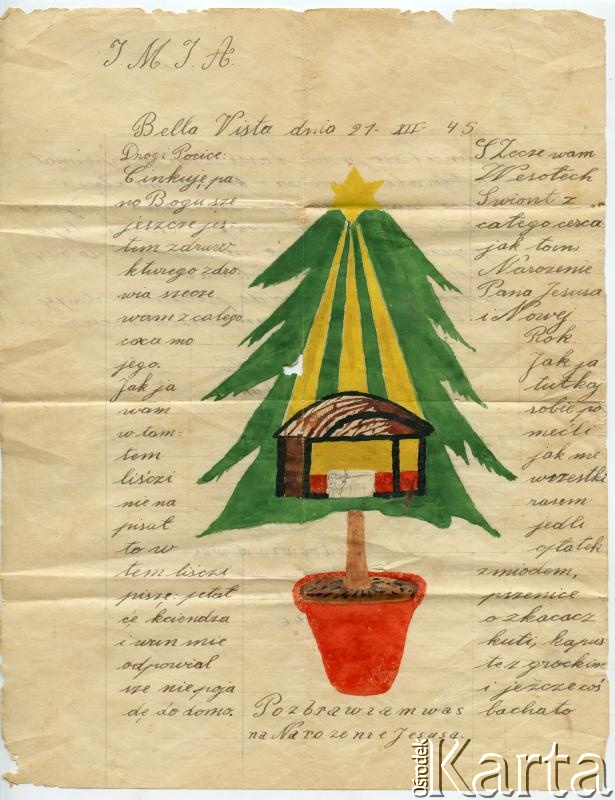 J. M. J. A.
Bella Vista dnia 21- XII- 45
Drogi Pocice:
Cinkuję, pa
no Bogu sze
jeszcze jes-
tem zdruw
kturego zdro
wia szecze
wam z całego
coca mo
jego.
Jak ja
wam
w tam-
tem
liśczi
nie na
pisał
to w
tem liśczi
piszę: pelał
ćę kciendza
i wun mie
odpowial
sze nie poja
dę do domo.
SZecze wam
Wesołech
Swiont z
całego cerca.
jak tam
Narozenie
Pana Jesusa
i Nowej
Rok.
Jak ja
tutkaj
sobie po
mećli
jak me
wrzestki
rasem
jedli
opłatek
z miodem,
przenice
o zkacacz
kuti, kapus
te z grockim
i jeżcze coś
bachato
Pozbrawiam was
na Narozenie Jesusa.
Ośrodek
Karta